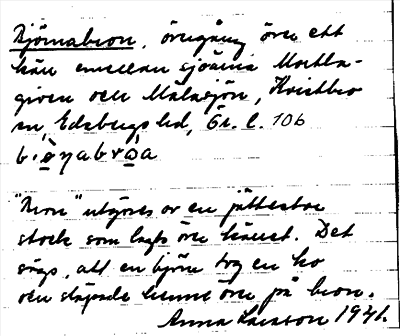 Björnabron, övergång över ett
kärr emellan sjöarna Mortla-
given och Målasjön, Kvistbro
sn, Edsbergs hd, Ör. l. 106
b.i.ö̀ṇabrɷ̀a
"Bron" utgöres av en jättestor
stock som lagts över kärret. Det
sägs, att en björn tog en ko
och släpade henne över på bron.
Anna Larsson 1941.